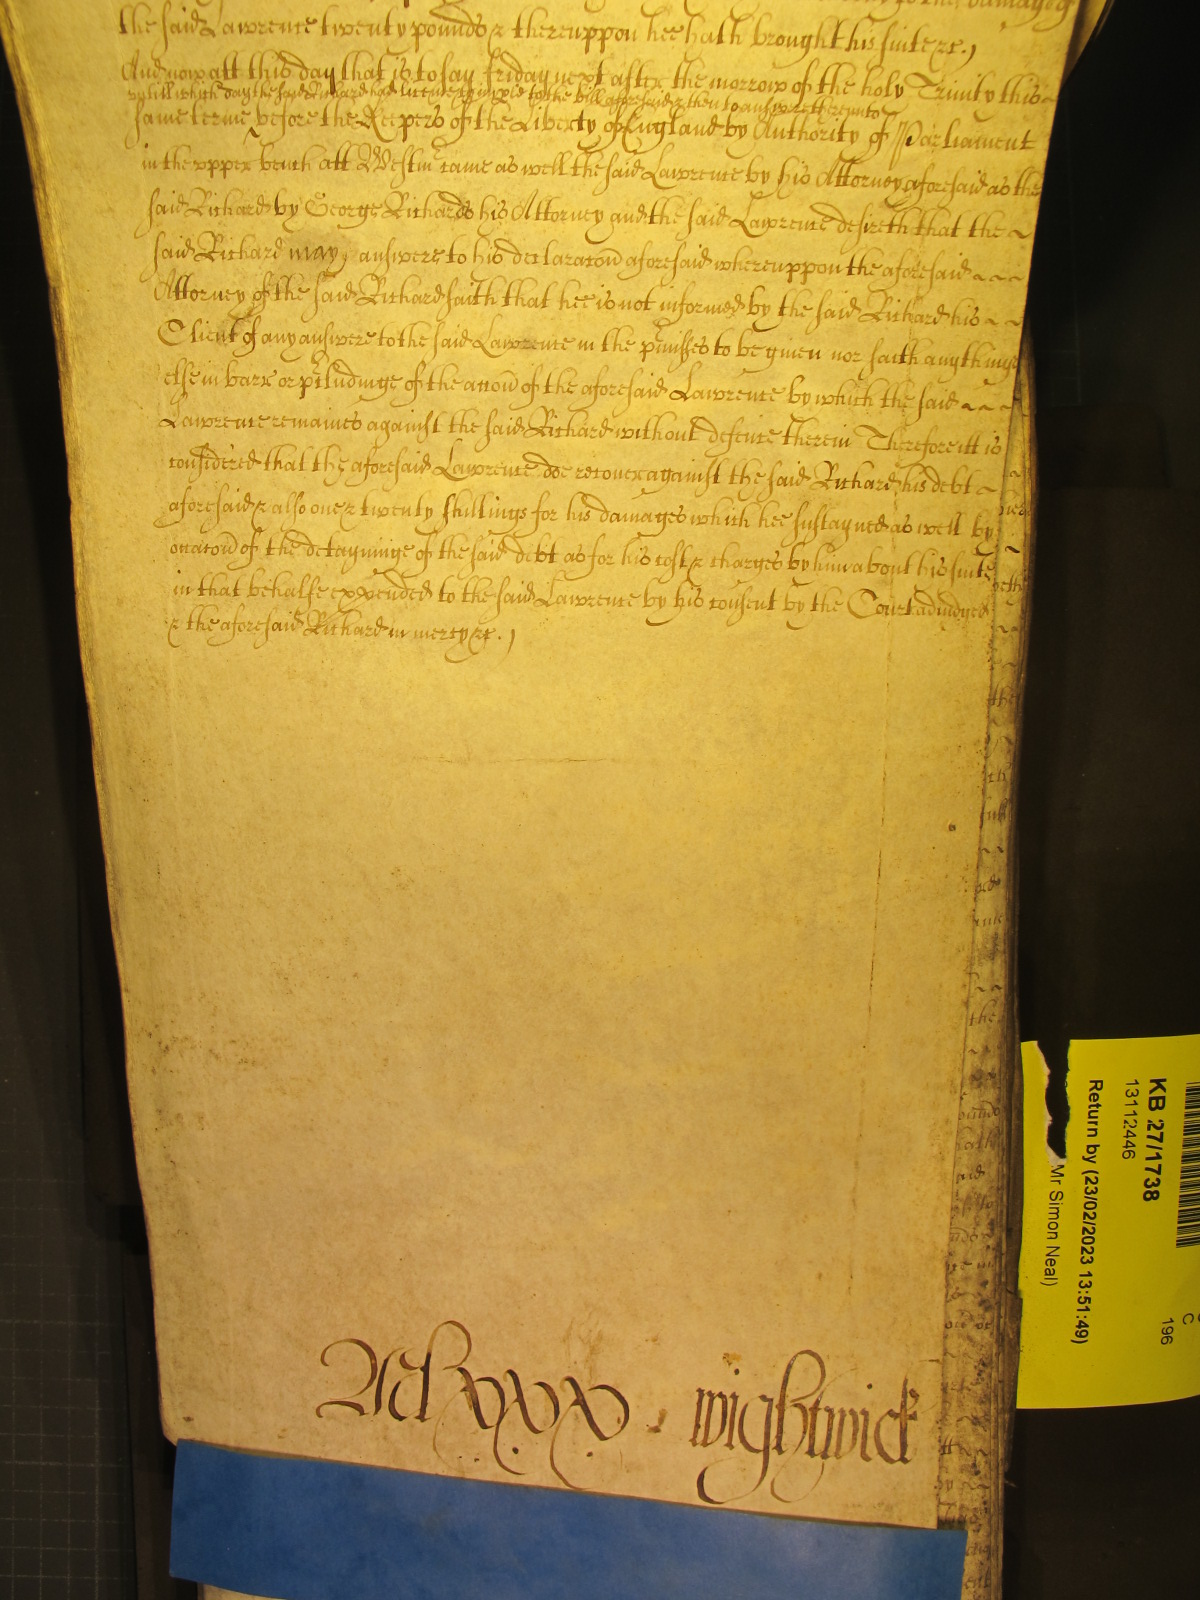 damages
the said Lawrence twenty pounds & thereuppon hee hath brought his suite &c.
And now att this day that is to say friday next after the morrow of the holy Trinity this
untill which day the said Richard had licence to imple to the bill aforesaid & then to answere thereunto
same terme before the Keepers of the Liberty of England by Authority of Parliament
in the upper bench att Westm came as well the said Lawrence by his Attorney aforesaid as the
said Richard by George Richards his Attorney and the said Lawrence desireth that the
said Richard may answere to his declaracon aforesaid whereuppon the aforesaid
Attorney of the said Richard saith that hee is not informed by the said Richard his
Client of any answere to the said Lawrence in the pmisses to be given nor saith anythinge
else in barr or pcludinge of the accon of the aforesaid Lawrence by which the said
Lawrence remaines against the said Richard without defence therein Therefore itt is
considered that the aforesaid Lawrence doe recover against the said Richard his debt
aforesaid & also one & twenty shillings for his damages which hee sustayned as well by
occacon of the detayninge of the said debt as for his cost & charges by him about his suite
in that behalfe expended to the said Lawrence by his consent by the Court adjudged
& the aforesaid Richard in mercy &c.
the
the
wightwick
KB 27/1738
13112446
Return by (23/02/2023 13:51:49)
Mr Simon Neal)
196
C